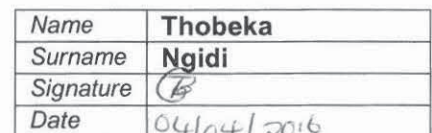 Name Thobeka
Surname Ngidi
Signature
Date 04/04/2016